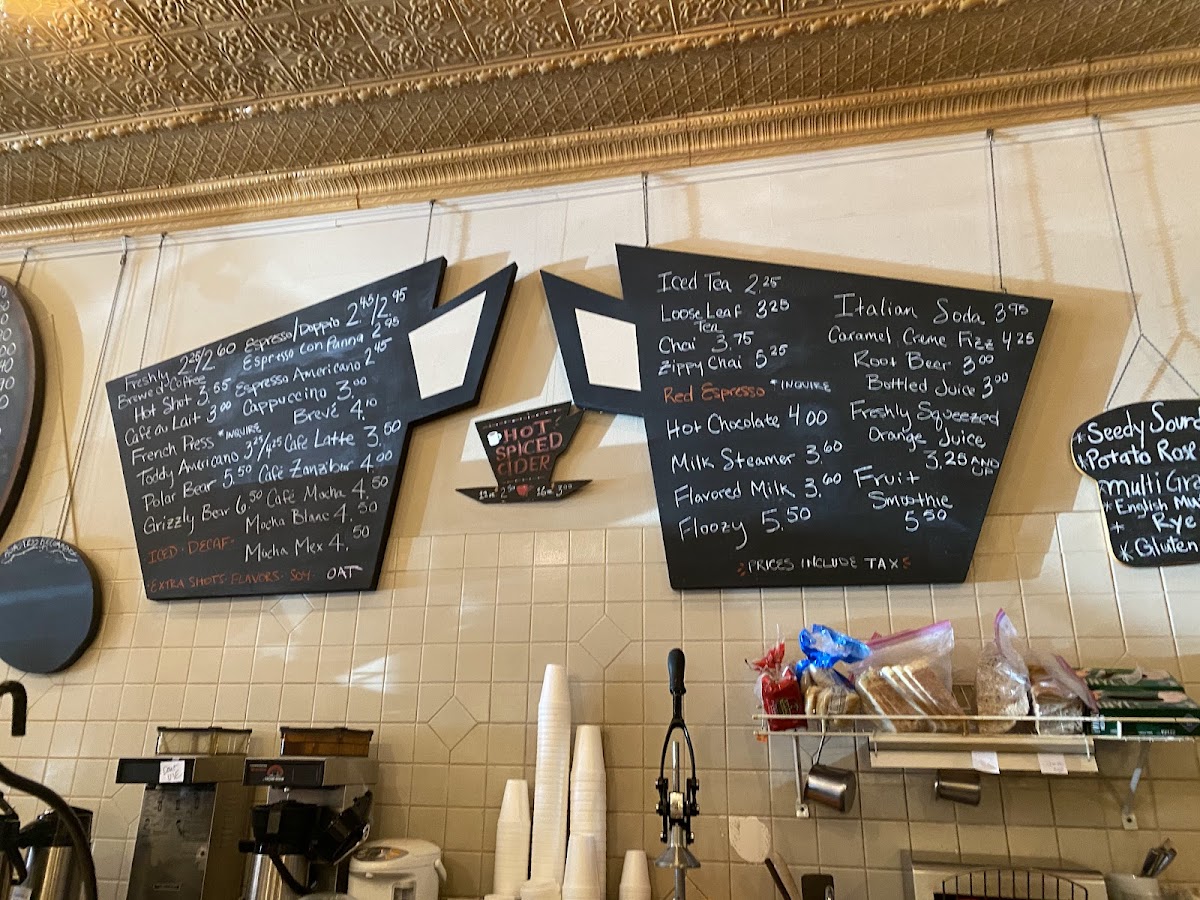 Freshly Brewed Coffee 2.25/2.60
Hot Shot 3.55
Café au Lait 3.00
French Press *INQUIRE
Toddy Americano 3.25/4.25
Polar Bear 5.50
Grizzly Bear 6.50
ICED · DECAF ·
· EXTRA SHOTS · FLAVORS · SOY · OAT
Espresso/Doppio 2.45/2.95
Espresso con Panna 2.95
Espresso Americano 2.45
Cappuccino 3.00
Brevé 4.10
Café Latte 3.50
Café Zanzibar 4.00
Café Mocha 4.50
Mocha Blanc 4.50
Mocha Mex 4.50
HOT
SPICED
CIDER
12oz 2.50 16oz 3.00
Iced Tea 2.25
Loose Leaf Tea 3.25
Chai 3.75
Zippy Chai 5.25
Red Espresso *INQUIRE
Hot Chocolate 4.00
Milk Steamer 3.60
Flavored Milk 3.60
Floozy 5.50
Italian Soda 3.95
Caramel Creme Fizz 4.25
Root Beer 3.00
Bottled Juice 3.00
Freshly Squeezed
Orange Juice
3.25 AND UP
Fruit
Smoothie
5.50
PRICES INCLUDE TAX
* Seedy Sour
* Potato Ros
Multi Gra
* English Mu
* Rye
* Gluten